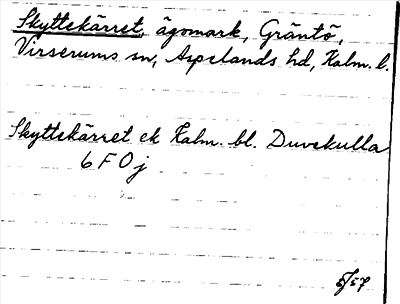 Skyttekärret, ägomark, Gräntö,
Virserums sn, Aspelands hd, Kalm. l.
Skyttekärret ek Kalm. bl. Duvekulla
6 F 0 j
5/57